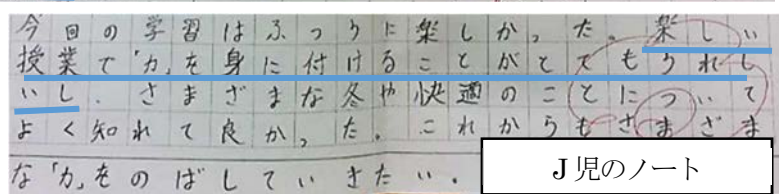 今回の学習はふつうに楽しかった。楽しい
授業で「力」を身に付けることがとてもうれし
いし、さまざまな冬や快適のことについて
よく知れて良かった。これからもさまざま
な「力」をのばしていきたい。
J 児のノート